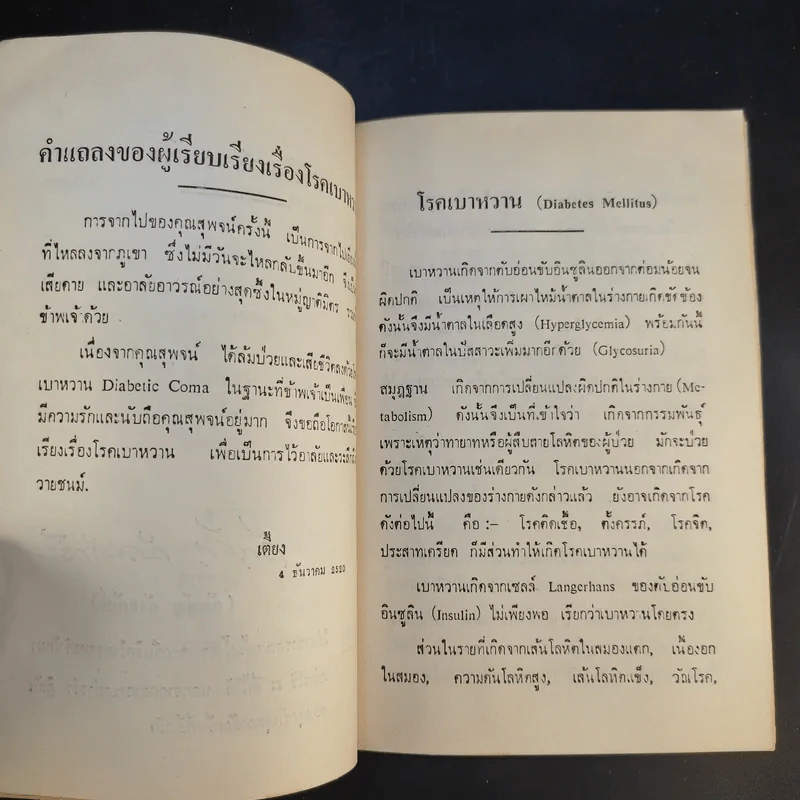 คำแถลงของผู้เรียบเรียงเรื่องโรคเบาหวาน
การจากไปของคุณสุพจน์ครั้งนี้ เป็นการจากไป
ที่ไหลลงจากภูเขา ซึ่งไม่มีวันจะไหลกลับขึ้นมาอีก
เสียดาย และอาลัยอาวรณ์อย่างสุดซึ้งในหมู่ญาติมิตร
ข้าพเจ้าด้วย
เนื่องจากคุณสุพจน์ ได้ล้มป่วยและเสียชีวิตลงด้วย
เบาหวาน Diabetic Coma ในฐานะที่ข้าพเจ้าเป็นเพื่อน
มีความรักและนับถือคุณสุพจน์อยู่มาก จึงขอถือโอกาส
เรียงเรื่องโรคเบาหวาน เพื่อเป็นการไว้อาลัยและระลึก
วายชนม์.
เตี้ยง
4 ธันวาคม 2520
โรคเบาหวาน (Diabetes Mellitus)
เบาหวานเกิดจากตับอ่อนขับอินซูลินออกจากต่อมน้อยจน
ผิดปกติ เป็นเหตุให้การเผาไหม้น้ำตาลในร่างกายเกิดขัดข้อง
ดังนั้นจึงมีน้ำตาลในเลือดสูง (Hyperglycemia) พร้อมกันนี้
ก็จะมีน้ำตาลในปัสสาวะเพิ่มมากอีกด้วย (Glycosuria)
สมุฎฐาน เกิดจากการเปลี่ยนแปลงผิดปกติในร่างกาย (Me-
tabolism) ดังนั้นจึงเป็นที่เข้าใจว่า เกิดจากกรรมพันธุ์
เพราะเหตุว่าทายาทหรือผู้สืบสายโลหิตของผู้ป่วย มักจะป่วย
ด้วยโรคเบาหวานเช่นเดียวกัน โรคเบาหวานนอกจากเกิดจาก
การเปลี่ยนแปลงของร่างกายดังกล่าวแล้ว ยังอาจเกิดจากโรค
ดังต่อไปนี้ คือ :– โรคติดเชื้อ, ตั้งครรภ์, โรคจิต,
ประสาทเครียด ก็มีส่วนทำให้เกิดโรคเบาหวานได้
เบาหวานเกิดจากเซลล์ Langerhans ของตับอ่อนขับ
อินซูลิน (Insulin) ไม่เพียงพอ เรียกว่าเบาหวานโดยตรง
ส่วนในรายที่เกิดจากเส้นโลหิตในสมองแตก, เนื้องอก
ในสมอง, ความดันโลหิตสูง, เส้นโลหิตแข็ง, วัณโรค,